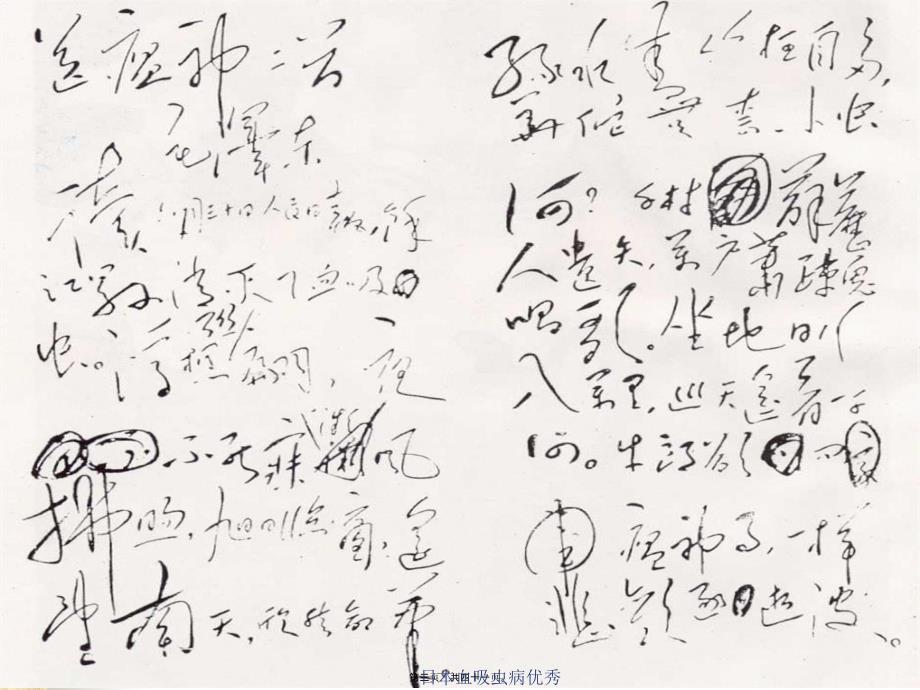 送瘟神二首
毛澤東
读六月三十日人民日報,餘
江县消灭了血吸
虫。浮想联翩,一夜
不能寐,微風
拂煦,旭日临窗,遥
望南天,欣然命筆
绿水青山枉自多,
華佗無奈小虫
何?千村薜荔
人遗矢,万户萧疏鬼
唱歌。坐地日行
八万里,巡天遥看一千
河。牛郎欲问
瘟神事,一样
悲歡逐逝波。
日本血吸虫病优秀